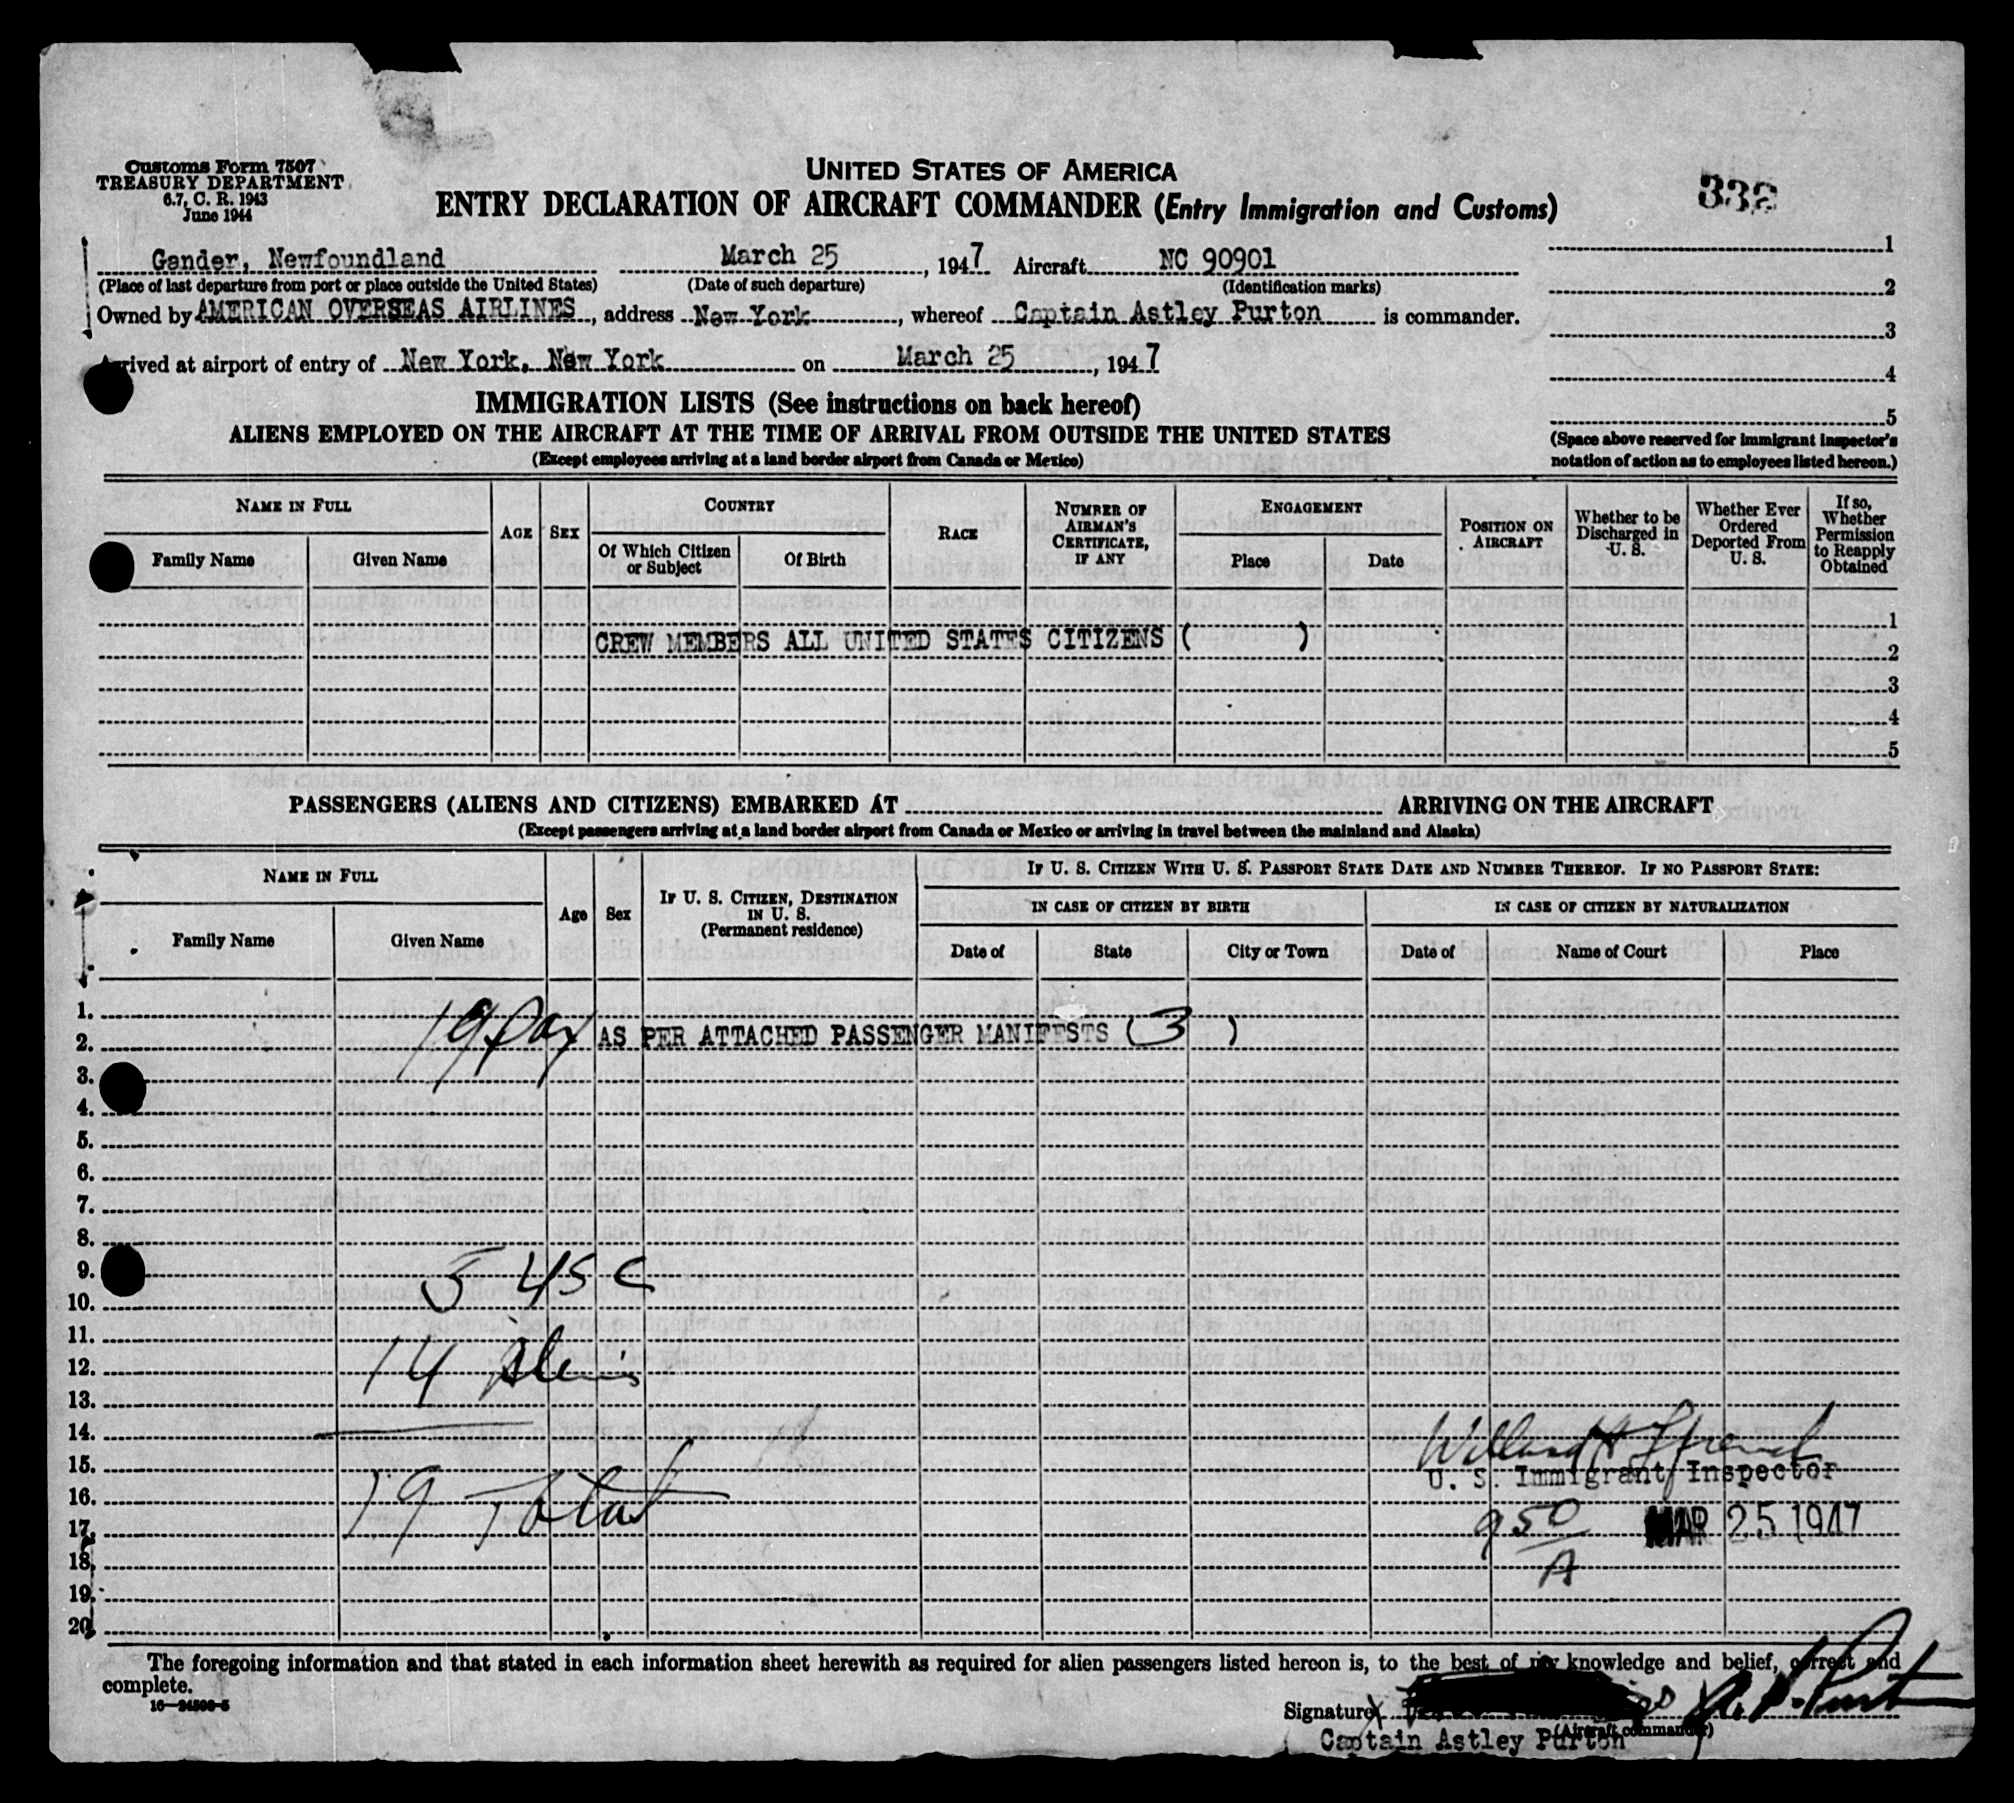 Customs Form 7507
TREASURY DEPARTMENT
6.7, C. R. 1943
June 1944
UNITED STATES OF AMERICA
ENTRY DECLARATION OF AIRCRAFT COMMANDER (Entry Immigration and Customs)
338
Gander, Newfoundland March 25, 1947 Aircraft NC 90901
(Place of last departure from port or place outside the United States) (Date of such departure) (Identification marks)
Owned by AMERICAN OVERSEAS AIRLINES, address New York, whereof Captain Astley Purton is commander.
Arrived at airport of entry of New York, New York on March 25, 1947
1
2
3
4
5
(Space above reserved for immigrant inspector's notation of action as to employees listed hereon.)
IMMIGRATION LISTS (See instructions on back hereof)
ALIENS EMPLOYED ON THE AIRCRAFT AT THE TIME OF ARRIVAL FROM OUTSIDE THE UNITED STATES
(Except employees arriving at a land border airport from Canada or Mexico)
NAME IN FULL
Family Name
Given Name
AGE
SEX
COUNTRY
Of Which Citizen or Subject
Of Birth
RACE
NUMBER OF AIRMAN'S CERTIFICATE, IF ANY
ENGAGEMENT
Place
Date
POSITION ON AIRCRAFT
Whether to be Discharged in U. S.
Whether Ever Ordered Deported From U. S.
If so, Whether Permission to Reapply Obtained
1
CREW MEMBERS ALL UNITED STATES CITIZENS ( )
2
3
4
5
PASSENGERS (ALIENS AND CITIZENS) EMBARKED AT ARRIVING ON THE AIRCRAFT
(Except passengers arriving at a land border airport from Canada or Mexico or arriving in travel between the mainland and Alaska)
NAME IN FULL
Family Name
Given Name
Age
Sex
IF U. S. CITIZEN, DESTINATION IN U. S.
(Permanent residence)
IF U. S. CITIZEN WITH U. S. PASSPORT STATE DATE AND NUMBER THEREOF. IF NO PASSPORT STATE:
IN CASE OF CITIZEN BY BIRTH
IN CASE OF CITIZEN BY NATURALIZATION
Date of
State
City or Town
Date of
Name of Court
Place
1.
2. 19 pax AS PER ATTACHED PASSENGER MANIFESTS (3)
3.
4.
5.
6.
7.
8.
9. 5 USC
10.
11.
12. 14 Aliens
13.
14.
15. U. S. Immigrant Inspector
16. 19 Total
17. 9 50 MAR 25 1947
18. A
19.
20.
The foregoing information and that stated in each information sheet herewith as required for alien passengers listed hereon is, to the best of my knowledge and belief, correct and
complete.
16—24506-5
Signature X A. Purton
(Aircraft commander)
Captain Astley Purton